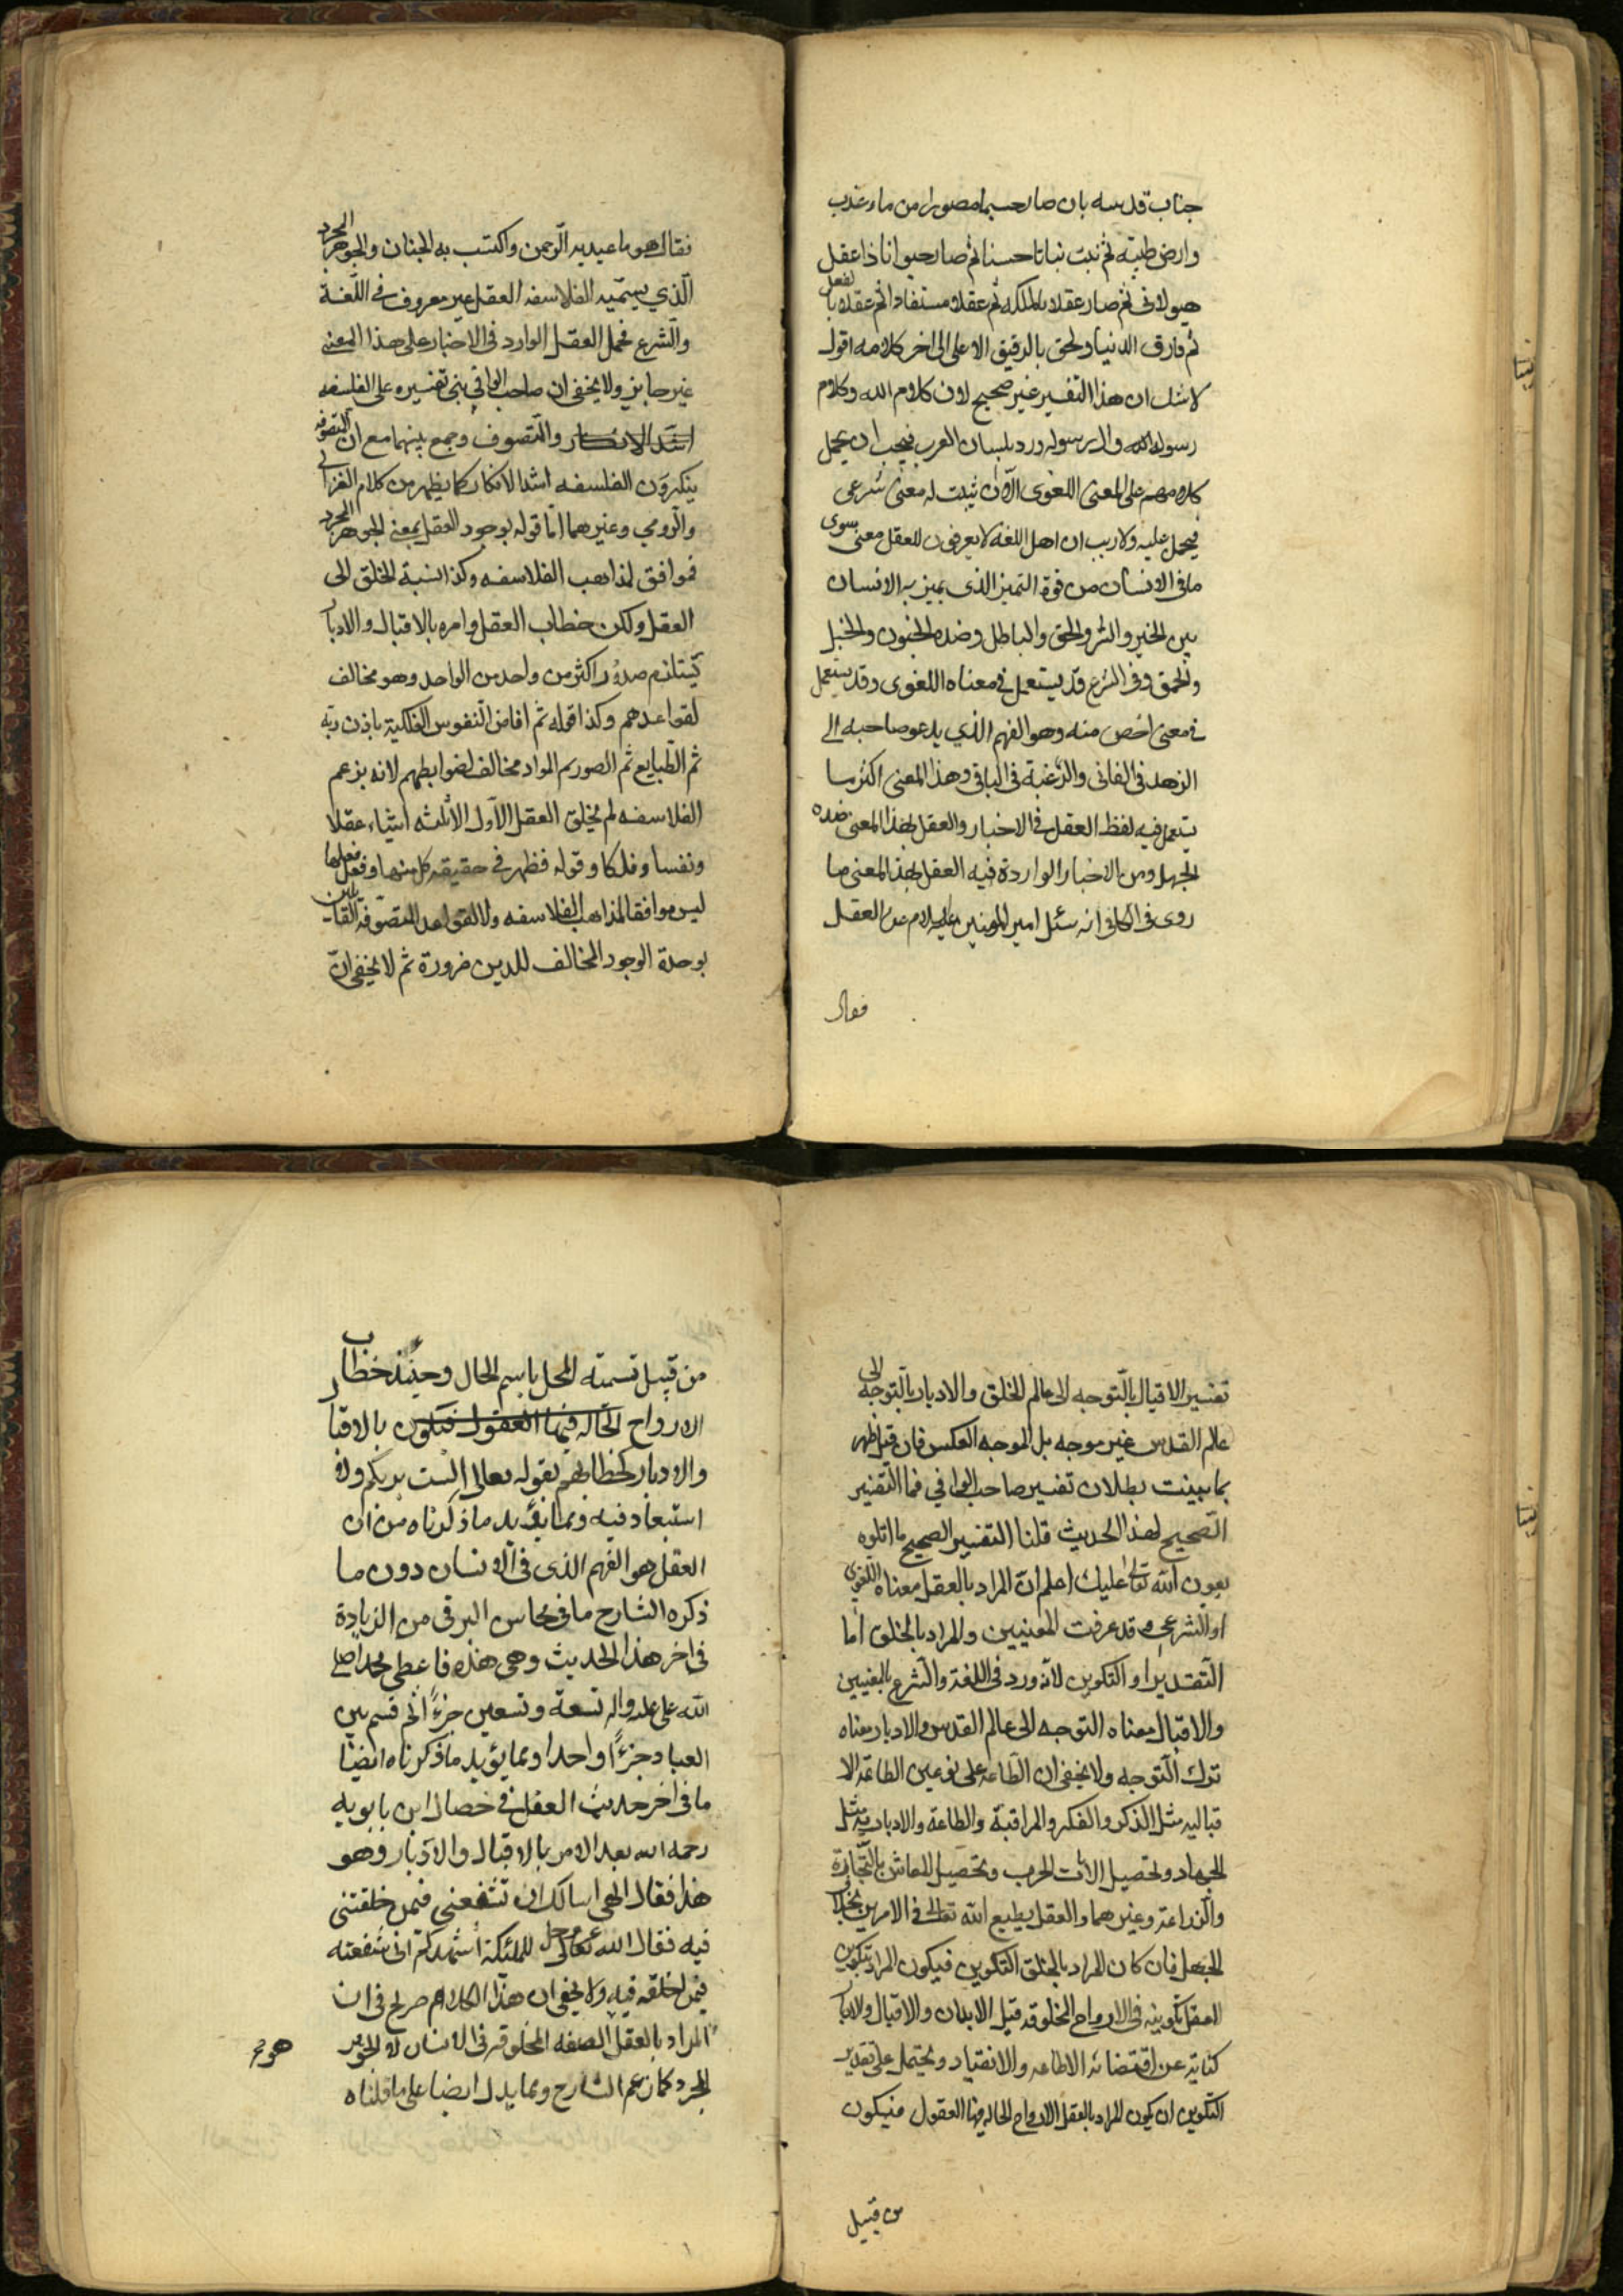 جناب قدسه بان صار جسما مصورا من ماء عذب
وارض طيبة ثم نبت نباتا حسنا ثم صار حيوانا ذا عقل
هيولانى ثم صار عقلا بالملكه ثم عقلا مستفادا ثم عقلا بالفعل
ثم فارق الدنيا ولحق بالرفيق الاعلى الى اخر كلامه اقول
لا شك ان هذا التفسير غير صحيح لان كلام الله وكلام
رسوله واله رسوله ورد بلسان العرب فيجب ان يحمل
كلامهم على المعنى اللغوى الا ان يثبت له معنى شرعى
فيحمل عليه ولا ريب ان اهل اللغة لا يعرفون للعقل معنى سوى
ما فى الانسان من قوة التميز الذى يميز به الانسان
بين الخير والشر والحق والباطل وضده الجنون والخبل
والحمق وفى الشرع قد يستعمل فى معناه اللغوى وقد يستعمل
فى معنى اخص منه وهو الفهم الذي يدعو صاحبه الى
الزهد فى الفانى والرغبة فى الباقى وهذا المعنى اكثر ما
يستعمل فيه لفظ العقل فى الاخبار والعقل بهذا المعنى ضده
الجهل ومن الاخبار الواردة فيه العقل بهذا المعنى ما
روى فى الكافى انه سئل امير المومنين عليه السلام عن العقل
فقال
فقال هو ما عبد به الرحمن واكتسب به الجنان والجوهر المجرد
الذي يسميه الفلاسفه العقل غير معروف فى اللغة
والشرع فحمل العقل الوارد فى الاخبار على هذا المعنى
غير جايز ولا يخفى ان صاحب الوافي بنى تفسيره على الفلسفه
اشد الانكار والتصوف وجمع بينهما مع ان المتصوفه
ينكرون الفلسفه اشد الانكار كما يظهر من كلام الغزالي
والرومي وغيرهما اما قوله بوجود العقل بمعنى الجوهر المجرد
فموافق لمذاهب الفلاسفه وكذا نسبة الخلق الى
العقل ولكن خطاب العقل وامره بالاقبال والادبار
يستلزم صدور اكثر من واحد من الواحد وهو مخالف
لقواعدهم وكذا قوله ثم افاض النفوس الفلكية باذن ربه
ثم الطبايع ثم الصور ثم المواد مخالف لضوابطهم لانه بزعم
الفلاسفه لم يخلق العقل الاول الا ثلثه اشياء عقلا
ونفسا وفلكا وقوله فظهر فى حقيقه كل منها وفعل فعلها
ليس موافقا لمذاهب الفلاسفه ولا لقواعد المتصوفة القائلين
بوحدة الوجود المخالف للدين ضرورة ثم لا يخفى ان
تفسير الاقبال بالتوجه الى عالم الخلق والادبار بالتوجه الى
عالم القدس غير موجه بل الموجه العكس فان قيل ظهر
بما بينت بطلان تفسير صاحب الوافي فما التفسير
الصحيح لهذا الحديث قلنا التفسير الصحيح ما اتلوه
بعون الله تعالى عليك اعلم ان المراد بالعقل معناه اللغوى
او الشرعي وقد عرفت المعنيين والمراد بالخلق اما
التقدير او التكوين لانه ورد فى اللغة والشرع بالمعنيين
والاقبال معناه التوجه الى عالم القدس والادبار معناه
ترك التوجه ولا يخفى ان الطاعه على نوعين الطاعة الا
قباليه مثل الذكر والفكر والمراقبة والطاعة والادباريه مثل
الجهاد وتحصيل الات الحرب وتحصيل المعاش بالتجارة
والزراعة وغيرهما والعقل يطيع الله تعالى فى الامرين بخلاف
الجهل فان كان المراد بالخلق التكوين فيكون المراد بتكوين
العقل تكوينه فى الارواح المخلوقه قبل الابدان والاقبال والادبار
كناية عن اقتضائه الاطاعه والانقياد ويحتمل على تقدير
التكوين ان يكون المراد بالعقل الارواح الحاله فيها العقول فيكون
من قبيل
من قبيل تسمته المحل باسم الحال وحينئذ خطاب
الارواح الحاله فيها العقول فيكون بالاقبال
والادبار كخطابهم بقوله تعالى الست بربكم ولا
استبعاد فيه ومما يؤيد ما ذكرناه من ان
العقل هو الفهم الذى فى الانسان دون ما
ذكره الشارح ما فى محاسن البرقى من الزيادة
فى اخر هذا الحديث وهى هذه فاعطى محمدا صلى
الله على محمد واله تسعة وتسعين جزءً اثم قسم بين
العباد جزءًا واحدا ومما يؤيد ما ذكرناه ايضا
ما فى اخر حديث العقل فى خصال ابن بابويه
رحمه الله بعد الامر بالاقبال والادبار وهو
هذا فقال الهى اسالك ان تشفعنى فيمن خلقتنى
فيه فقال الله تعالى عز وجل للملئكة اشهدكم انى شفعته
فيمن خلقه فيه ولا يخفى ان هذا الكلام صريح فى ان
المراد بالعقل الصفه المخلوقه فى الانسان لا الجوهر
المجرد كما زعم الشارح ومما يدل ايضا على ما قلناه